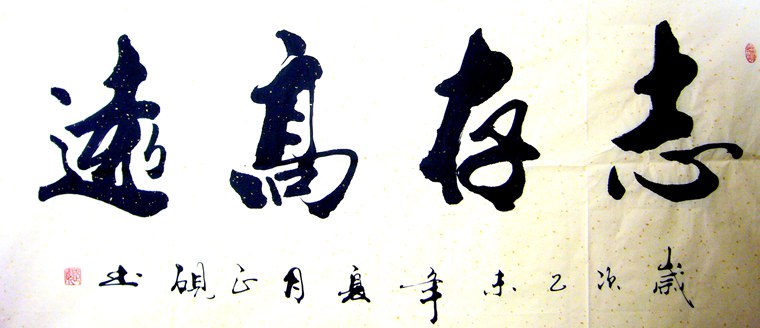 志存高遠
歲次乙未年夏月正硯书